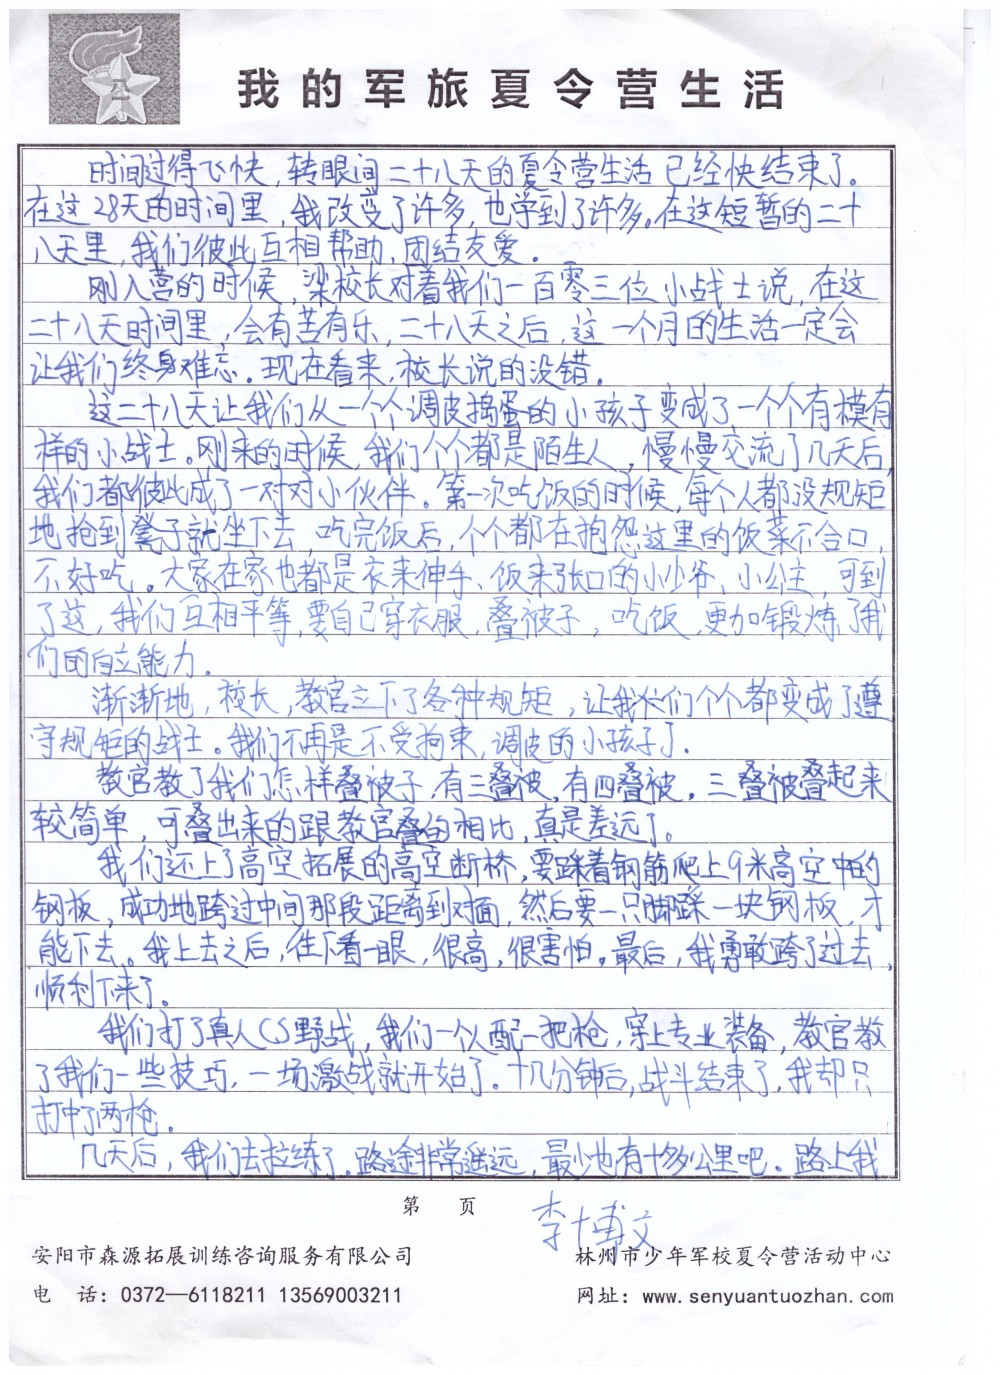 我的军旅夏令营生活
时间过得飞快，转眼间二十八天的夏令营生活已经快结束了。
在这28天的时间里，我改变了许多，也学到了许多。在这短暂的二十
八天里，我们彼此互相帮助，团结友爱。
刚入营的时候，梁校长对着我们一百零三位小战士说，在这
二十八天时间里，会有苦有乐，二十八天之后，这一个月的生活一定会
让我们终身难忘。现在看来，校长说的没错。
这二十八天让我们从一个个调皮捣蛋的小孩子变成了一个个有模有
样的小战士。刚来的时候，我们个个都是陌生人，慢慢交流了几天后，
我们都彼此成了一对对小伙伴。第一次吃饭的时候，每个人都没规矩
地抢到凳子就坐下去，吃完饭后，个个都在抱怨这里的饭菜不合口，
不好吃。大家在家也都是衣来伸手、饭来张口的小少爷、小公主，可到
了这，我们互相平等，要自己穿衣服，叠被子，吃饭，更加锻炼了我
们的自立能力。
渐渐地，校长，教官立下了各种规矩，让我们个个都变成了遵
守规矩的战士。我们不再是不受拘束，调皮的小孩子了。
教官教了我们怎样叠被子，有三叠被，有四叠被，三叠被叠起来
较简单，可叠出来的跟教官叠的相比，真是差远了。
我们还上了高空拓展的高空断桥，要踩着钢筋爬上9米高空中的
钢板，成功地跨过中间那段距离到对面，然后要一只脚踩一块钢板，才
能下去。我上去之后，往下看一眼，很高，很害怕。最后，我勇敢跨了过去，
顺利下来了。
我们打了真人CS野战，我们一个人配一把枪，穿上专业装备，教官教
了我们一些技巧，一场激战就开始了。十几分钟后，战斗结束了，我却只
打中了两枪。
几天后，我们去拉练了。路途非常遥远，最少也有十多公里吧。路上我
第 页
李博文
安阳市森源拓展训练咨询服务有限公司 林州市少年军校夏令营活动中心
电 话：0372—6118211 13569003211 网址：www.senyuantuozhan.com